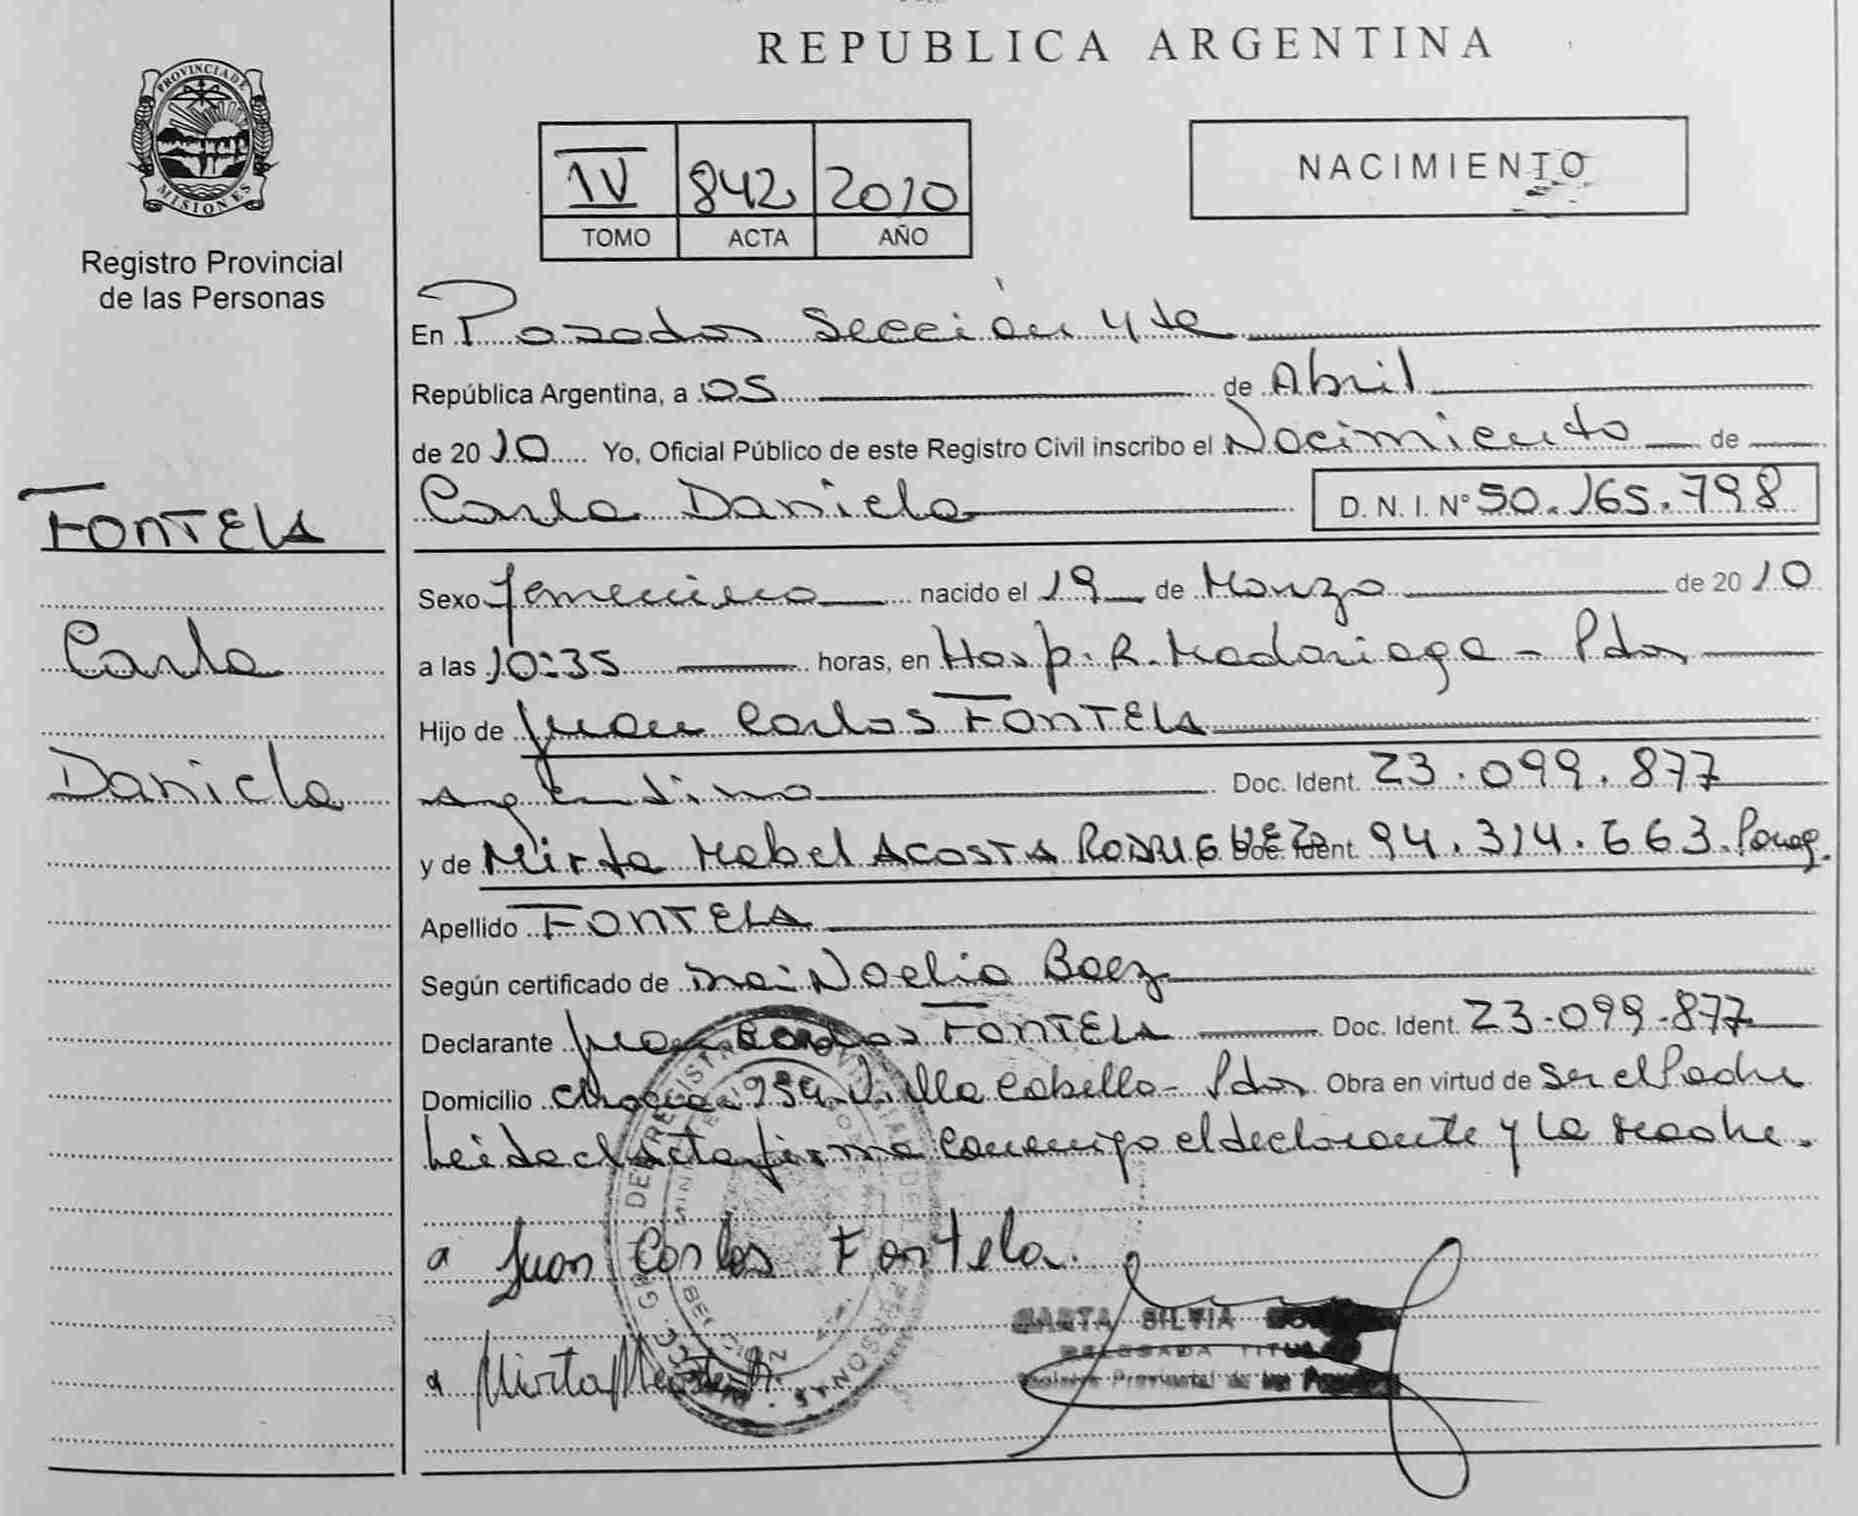 REPUBLICA ARGENTINA
PROVINCIA DE
MISIONES
Registro Provincial
de las Personas
IV 842 2010
TOMO ACTA AÑO
NACIMIENTO
FONTELA
Carla
Daniela
En Posadas Sección 4ta
República Argentina, a 05 de Abril
de 2010 Yo, Oficial Público de este Registro Civil inscribo el Nacimiento de
Carla Daniela D. N. I. N° 50.165.798
Sexo femenino nacido el 19 de Marzo de 2010
a las 10:35 horas, en Hosp. R. Madariaga - Pdas
Hijo de Juan Carlos FONTELA
argentino Doc. Ident. 23.099.877
y de Mirta Mabel ACOSTA RODRIGUEZ Doc. Ident. 94.314.663. Parag.
Apellido FONTELA
Según certificado de Noelia Baez
Declarante Juan Carlos FONTELA Doc. Ident. 23.099.877
Domicilio 954 Villa Cabello - Pdas Obra en virtud de ser el Padre
Leida el acta firma conmigo el declarante y la madre.
a Juan Carlos Fontela.
a Mirta
SILVIA
DELEGADA TITULAR
Provincial de las